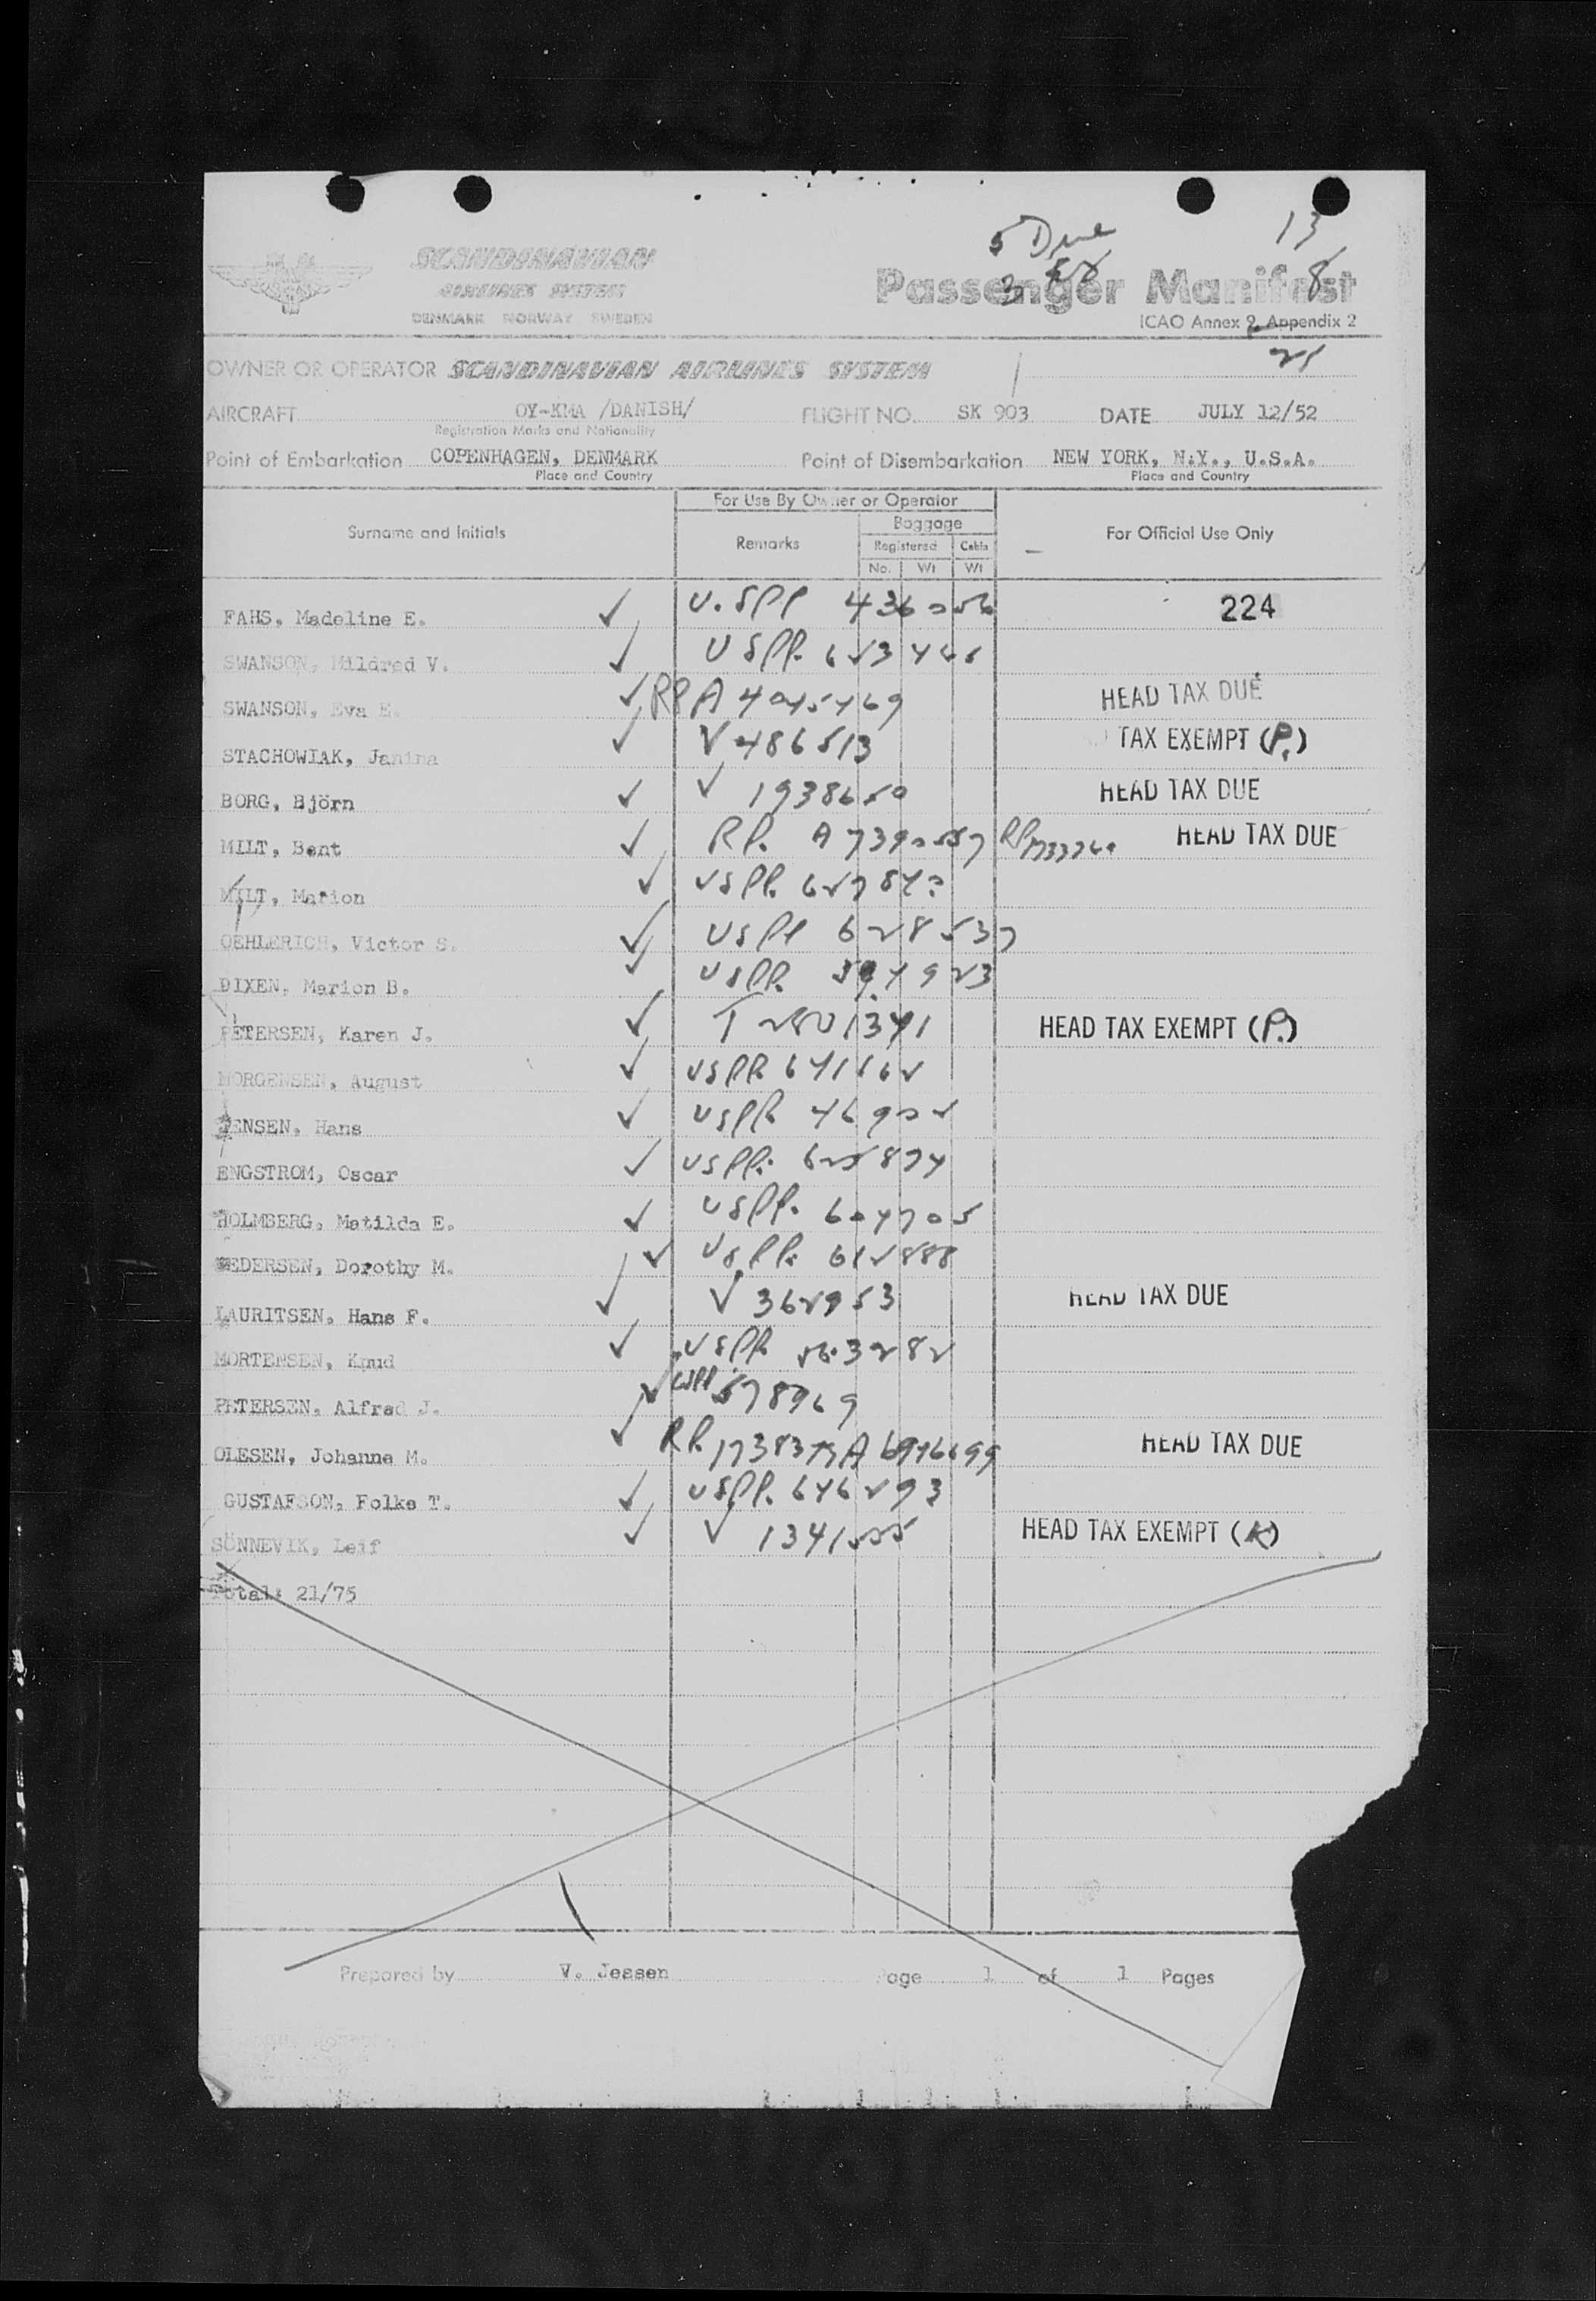 5 Due 13
3 Ex 8
SCANDINAVIAN
AIRLINES SYSTEM
DENMARK NORWAY SWEDEN
Passenger Manifest
ICAO Annex 9, Appendix 2
21
OWNER OR OPERATOR SCANDINAVIAN AIRLINES SYSTEM
AIRCRAFT OY-KMA /DANISH/ FLIGHT NO. SK 903 DATE JULY 12/52
Registration Marks and Nationality
Point of Embarkation COPENHAGEN, DENMARK Point of Disembarkation NEW YORK, N.Y., U.S.A.
Place and Country Place and Country
For Use By Owner or Operator
Surname and Initials Remarks Baggage For Official Use Only
Registered Cabin
No. Wt Wt
FAHS, Madeline E. ✓ U.SPP 436056 224
SWANSON, Mildred V. ✓ USPP.
SWANSON, Eva E. ✓ RP A HEAD TAX DUE
STACHOWIAK, Janina ✓ V 486513 TAX EXEMPT (P.)
BORG, Björn ✓ V 1938650 HEAD TAX DUE
MILT, Bent ✓ RP. A 7390557 RP HEAD TAX DUE
MILT, Marion ✓ USPP.
OEHLERICH, Victor S. ✓ USPP 628537
DIXEN, Marion B. ✓ USPP. 594923
PETERSEN, Karen J. ✓ T HEAD TAX EXEMPT (P.)
MORGENSEN, August ✓ USPP. 641662
JENSEN, Hans ✓ USPP. 46902
ENGSTROM, Oscar ✓ USPP. 625874
HOLMBERG, Matilda E. ✓ USPP. 604705
PEDERSEN, Dorothy M. ✓ USPP. 612888
LAURITSEN, Hans F. ✓ V 362953 HEAD TAX DUE
MORTENSEN, Knud ✓ USPP. 563282
PETERSEN, Alfred J. ✓ USPP 578969
OLESEN, Johanne M. ✓ RP. HEAD TAX DUE
GUSTAFSON, Folke T. ✓ USPP. 646293
SÖNNEVIK, Leif ✓ V 1341555 HEAD TAX EXEMPT (K)
Total: 21/75
Prepared by V. Jessen Page 1 of 1 Pages